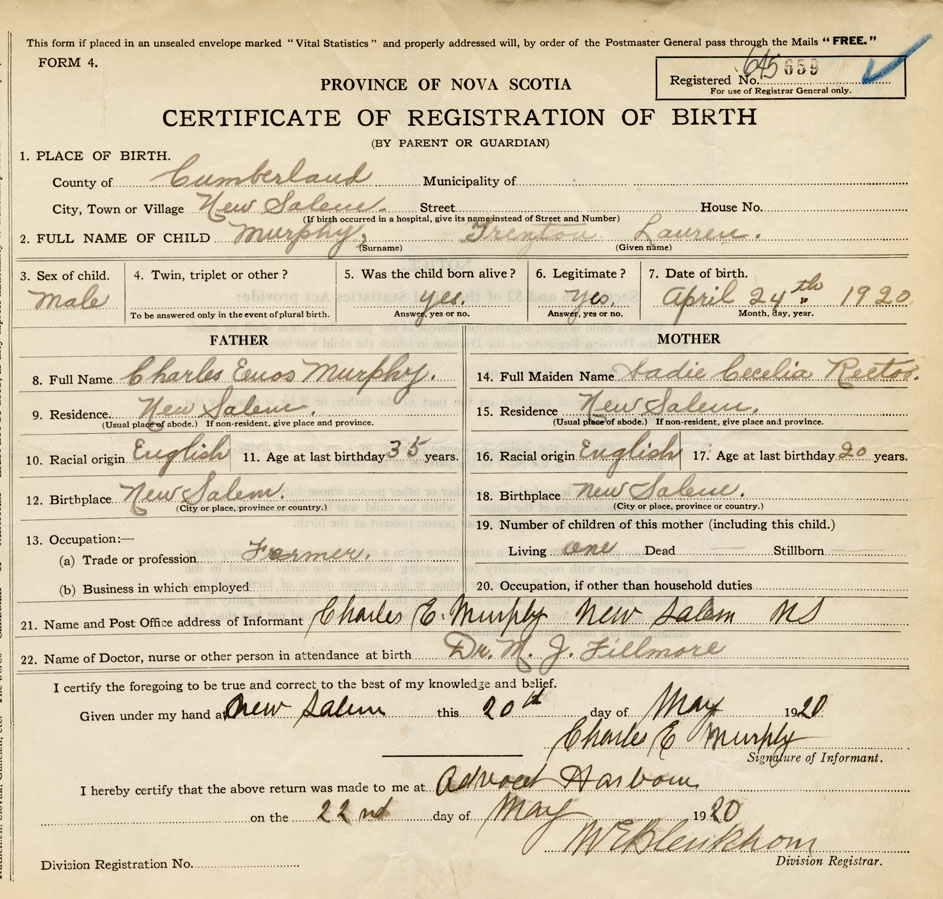 This form if placed in an unsealed envelope marked "Vital Statistics" and properly addressed will, by order of the Postmaster General pass through the Mails "FREE."
FORM 4.
Registered No. 659
For use of Registrar General only.
PROVINCE OF NOVA SCOTIA
CERTIFICATE OF REGISTRATION OF BIRTH
(BY PARENT OR GUARDIAN)
1. PLACE OF BIRTH.
County of Cumberland Municipality of
City, Town or Village New Salem. Street House No.
(If birth occurred in a hospital, give its name instead of Street and Number)
2. FULL NAME OF CHILD Murphy, Trenton Lauren.
(Surname) (Given name)
3. Sex of child. 4. Twin, triplet or other? 5. Was the child born alive? 6. Legitimate? 7. Date of birth.
Male yes. Yes. April 24th 1920
To be answered only in the event of plural birth. Answer, yes or no. Answer, yes or no. Month, day, year.
FATHER MOTHER
8. Full Name Charles Enos Murphy. 14. Full Maiden Name Sadie Cecelia
9. Residence. New Salem. 15. Residence New Salem.
(Usual place of abode.) If non-resident, give place and province. (Usual place of abode.) If non-resident, give place and province.
10. Racial origin English 11. Age at last birthday 35 years. 16. Racial origin English 17. Age at last birthday 20 years.
12. Birthplace New Salem. 18. Birthplace New Salem.
(City or place, province or country.) (City or place, province or country.)
13. Occupation:— 19. Number of children of this mother (including this child.)
(a) Trade or profession Farmer. Living one Dead — Stillborn —
(b) Business in which employed 20. Occupation, if other than household duties
21. Name and Post Office address of Informant Charles E. Murphy New Salem NS
22. Name of Doctor, nurse or other person in attendance at birth Dr. M. J. Fillmore
I certify the foregoing to be true and correct to the best of my knowledge and belief.
Given under my hand at New Salem this 20th day of May 1920
Charles E Murphy
Signature of Informant.
I hereby certify that the above return was made to me at Advocate Harbour
on the 22nd day of May 1920
Division Registration No. Division Registrar.